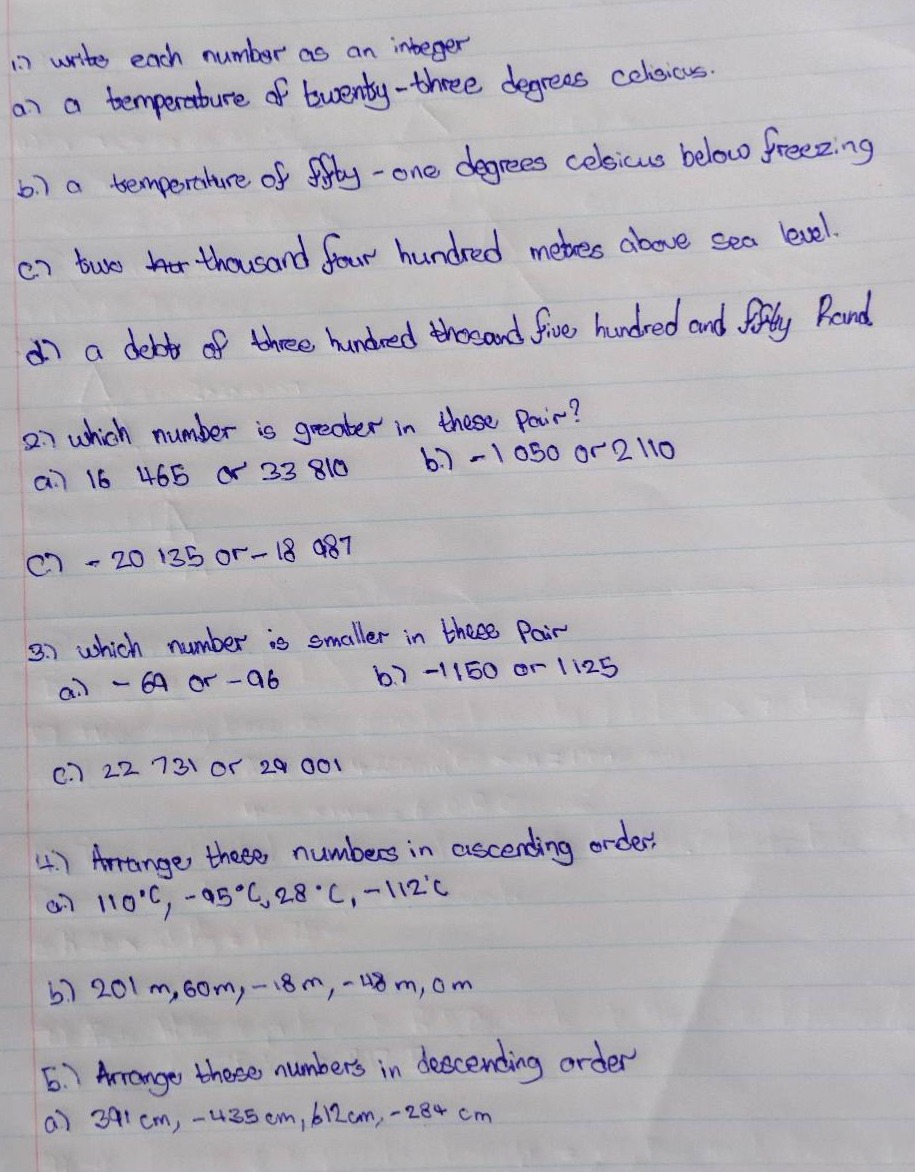 1.) write each number as an integer
a.) a temperature of twenty-three degrees celisicus.
b.) a temperature of fifty-one degrees celsicus below freezing
c.) two thousand four hundred metres above sea level.
d.) a debt of three hundred thosand five hundred and fifty Rand
2.) which number is greater in these Pair?
a.) 16 465 or 33 810 b.) -1 050 or 2 110
c.) -20 135 or -18 987
3.) which number is smaller in these Pair
a.) -69 or -96 b.) -1150 or 1125
c.) 22 731 or 29 001
4.) Arrange these numbers in ascending order:
a.) 110°C, -95°C, 28°C, -112°C
b.) 201 m, 60m, -18m, -48m, 0m
5.) Arrange these numbers in descending order
a) 391 cm, -435 cm, 612cm, -284 cm